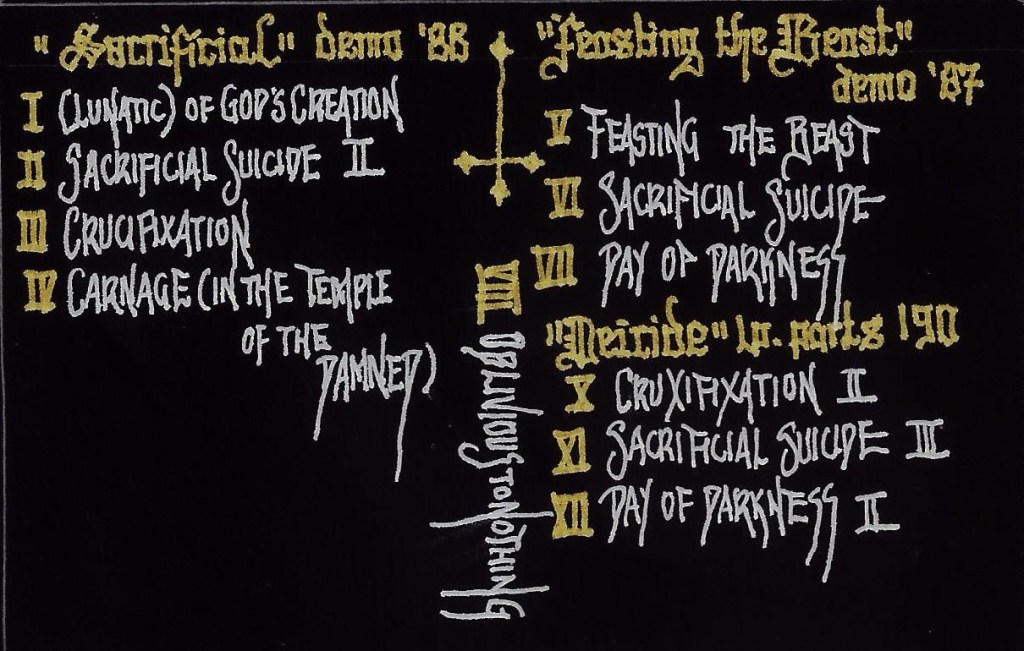 "Sacrificial" demo '88
I (LUNATIC) OF GOD'S CREATION
II SACRIFICIAL SUICIDE II
III CRUCIFIXATION
IV CARNAGE (IN THE TEMPLE
OF THE
DAMNED)
"Feasting the Beast"
demo '87
V FEASTING THE BEAST
VI SACRIFICIAL SUICIDE
VII DAY OF DARKNESS
VIII OBLIVIOUS TO NOTHING
"Deicide" lp. parts '90
X CRUXIFIXATION II
XI SACRIFICIAL SUICIDE III
XII DAY OF DARKNESS II